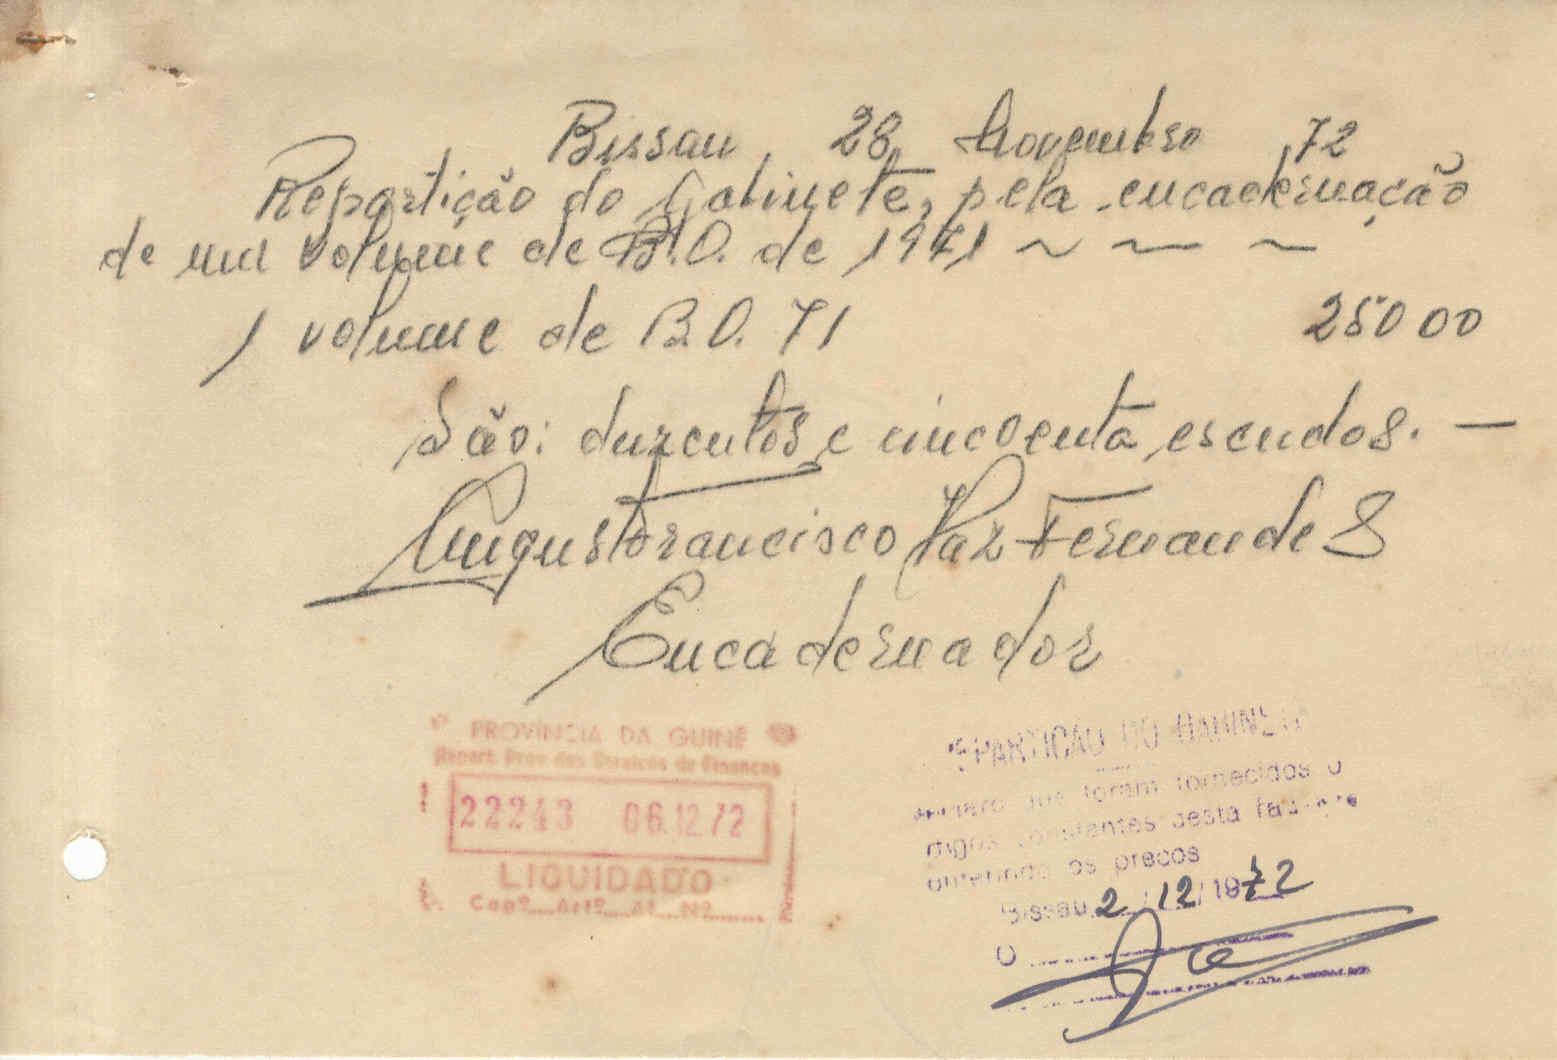 Bissau, 28 Novembro 72
Repartição do Gabinete, pela encadernação
de um volume de B.O. de 1971 ~ ~ ~
1 volume de B.O. 71 250 00
São: duzentos e cincoenta escudos. —
Augusto Francisco Paz Fernandes
Encadernador
PROVÍNCIA DA GUINÉ
Repart. Prov. dos Serviços de Finanças
22243 06.12.72
LIQUIDADO
Capº.... Artº.... Al.... Nº....
EPARTIÇÃO DO GABINET
que foram fornecidos o
constantes desta
os preços
Bissau 2/12/1972
O